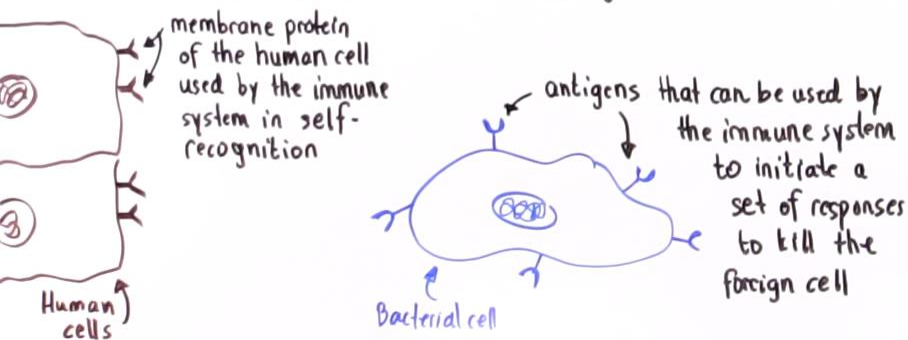 membrane protein
of the human cell
used by the immune
system in self-
recognition
antigens that can be used by
the immune system
to initiate a
set of responses
to kill the
foreign cell
Human
cells
Bacterial cell